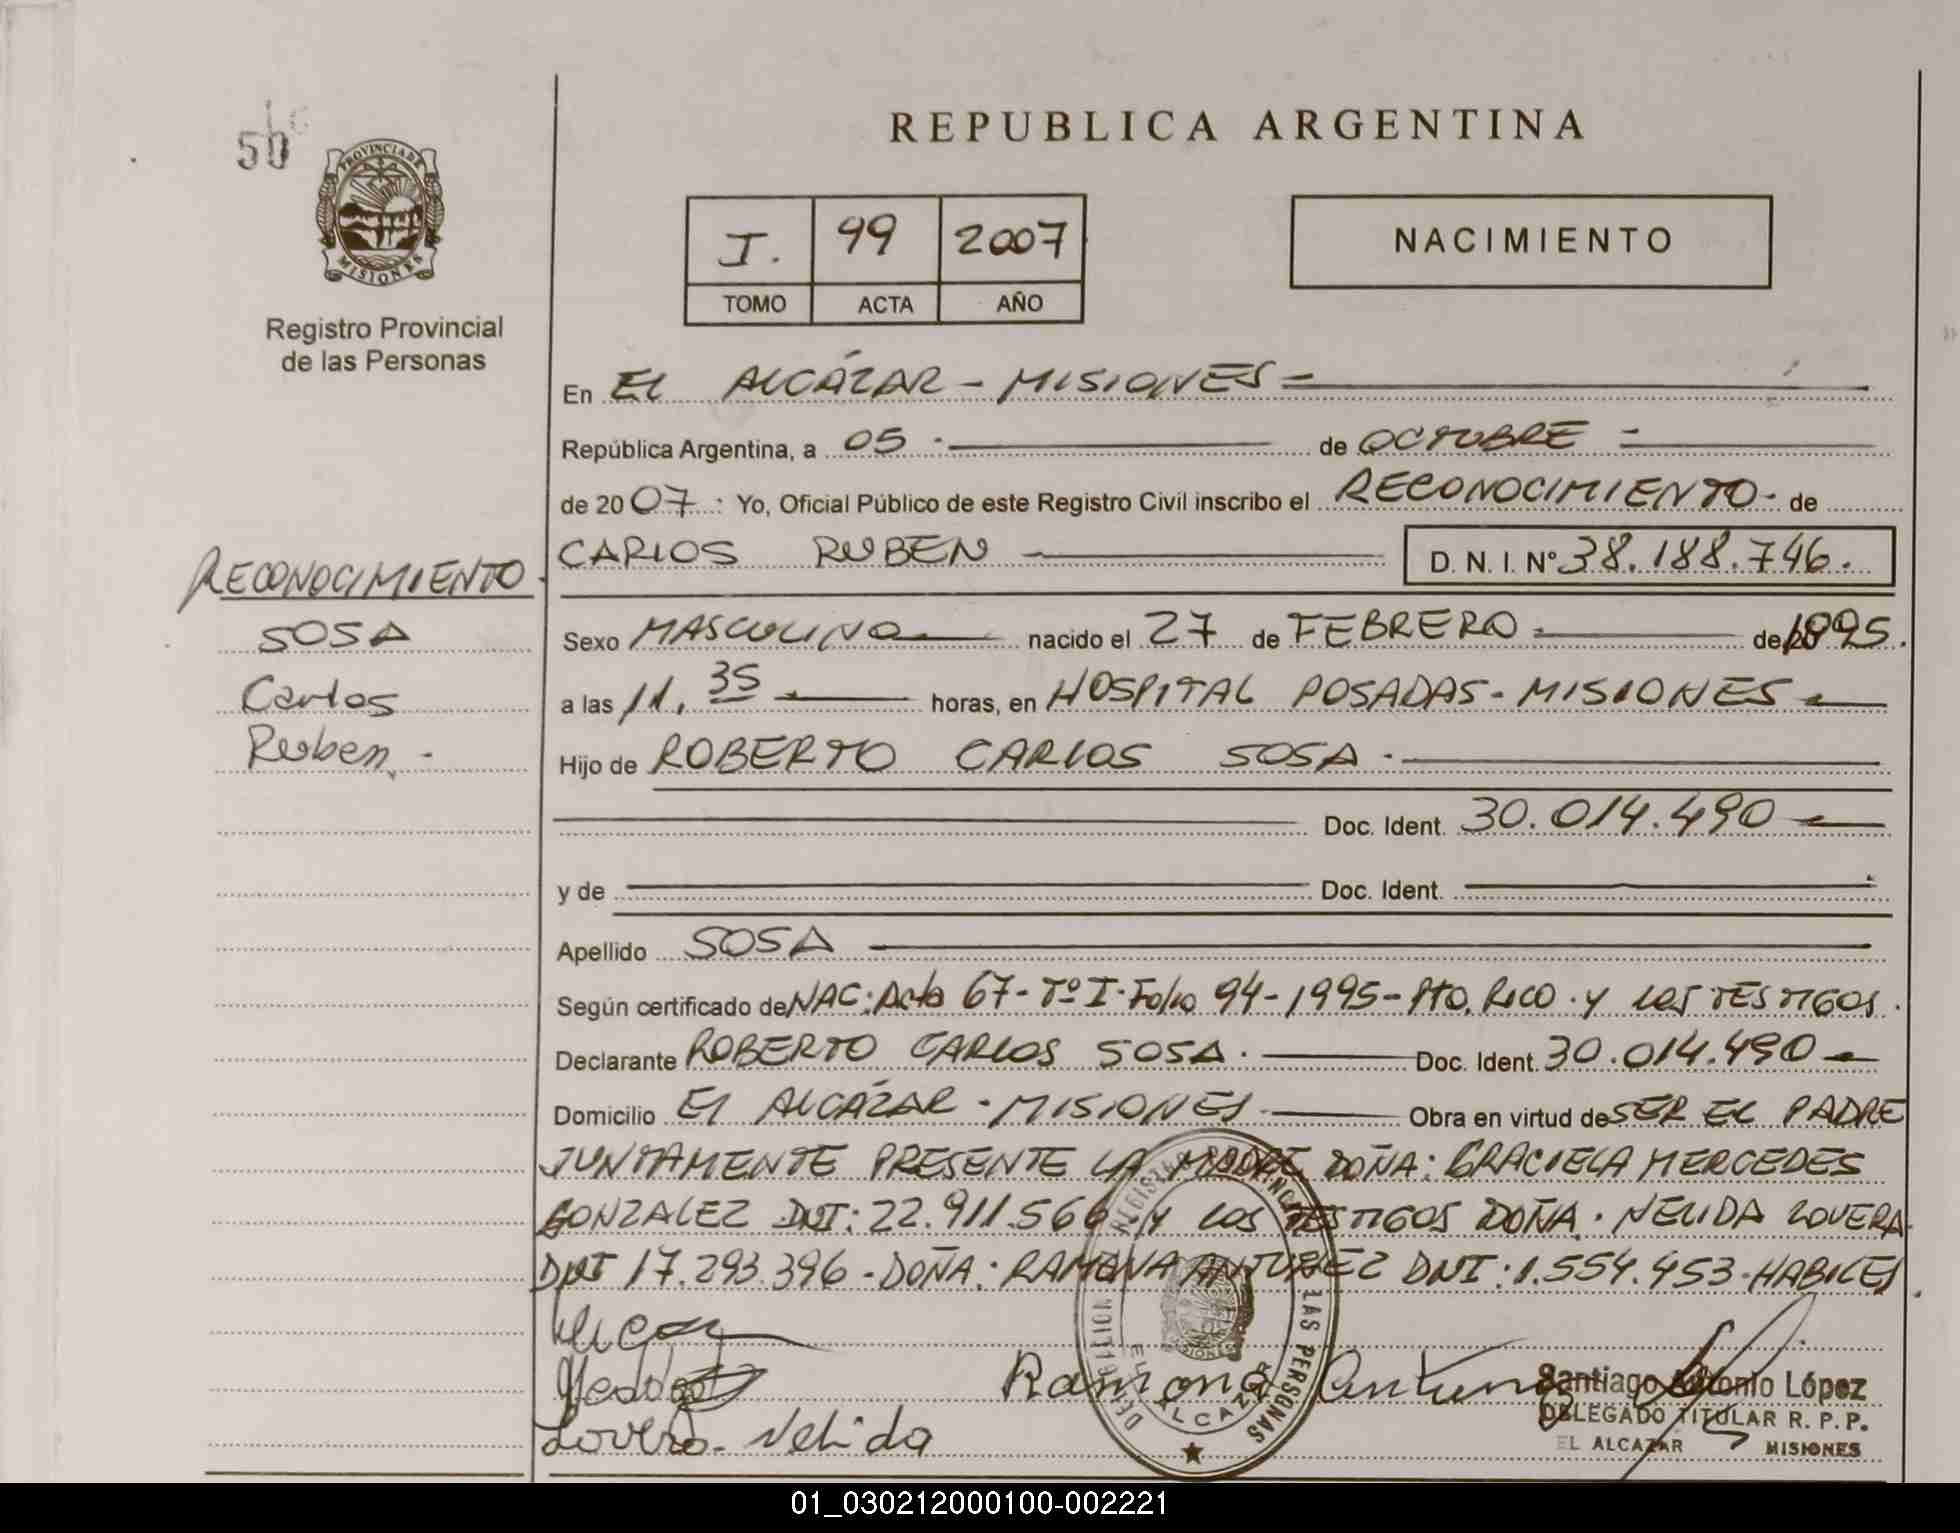 50
PROVINCIA DE
MISIONES
Registro Provincial
de las Personas
REPUBLICA ARGENTINA
I. 99 2007
TOMO ACTA AÑO
NACIMIENTO
En EL ALCÁZAR - MISIONES -
República Argentina, a 05 - de OCTUBRE -
de 2007 : Yo, Oficial Público de este Registro Civil inscribo el RECONOCIMIENTO - de
CARLOS RUBEN D. N. I. Nº 38.188.746.
RECONOCIMIENTO.
SOSA
Carlos
Ruben.-
Sexo MASCULINO nacido el 27 de FEBRERO de 1995.
a las 11.35 horas, en HOSPITAL POSADAS - MISIONES
Hijo de ROBERTO CARLOS SOSA -
Doc. Ident. 30.014.490
y de Doc. Ident.
Apellido SOSA
Según certificado de NAC: Acta 67 - Tº I - Folio 94 - 1995 - Pto. RICO . y LOS TESTIGOS.
Declarante ROBERTO CARLOS SOSA . Doc. Ident. 30.014.490
Domicilio El ALCÁZAR - MISIONES Obra en virtud de SER EL PADRE
JUNTAMENTE PRESENTE LA MADRE DOÑA: GRACIELA MERCEDES
GONZALEZ DNI: 22.911.566 y LOS TESTIGOS DOÑA. NELIDA LOVERA
DNI 17.293.396 - DOÑA: RAMONA ANTUNEZ DNI: 1.554.453 - HABILES
Ramona
Lovera. Nelida
DELEGACION REGISTRO PROVINCIAL LAS PERSONAS
EL ALCAZAR
MISIONES
Santiago Antonio López
DELEGADO TITULAR R. P. P.
EL ALCAZAR MISIONES
01_030212000100-002221